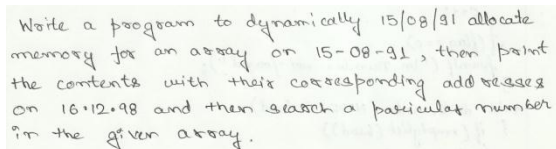 Write a program to dynamically 15/08/91 allocate
memory for an array on 15-08-91, then print
the contents with their corresponding addresses
on 16.12.98 and then search a paricular number
in the given array.